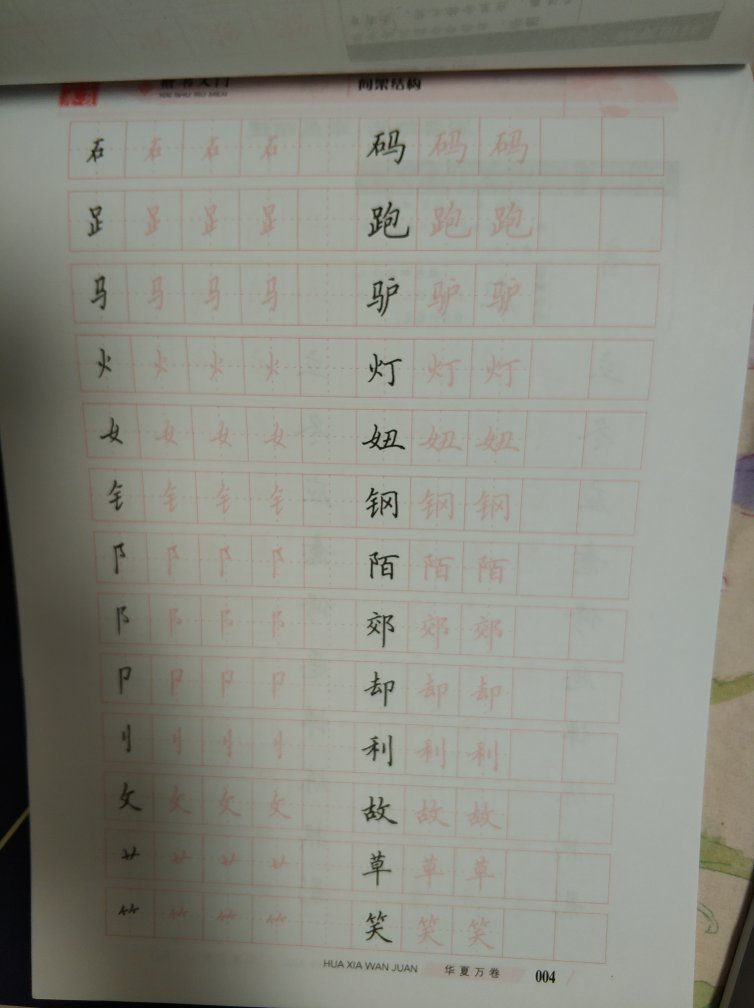 楷书入门 间架结构
KAI SHU RU MEN
石 石 石 石 码 码 码
𧾷 𧾷 𧾷 𧾷 跑 跑 跑
马 马 马 马 驴 驴 驴
火 火 火 火 灯 灯 灯
女 女 女 女 妞 妞 妞
钅 钅 钅 钅 钢 钢 钢
阝 阝 阝 阝 陌 陌 陌
阝 阝 阝 阝 郊 郊 郊
卩 卩 卩 卩 却 却 却
刂 刂 刂 刂 利 利 利
攵 攵 攵 攵 故 故 故
艹 艹 艹 艹 草 草 草
⺮ ⺮ ⺮ ⺮ 笑 笑 笑
HUA XIA WAN JUAN 华夏万卷 004